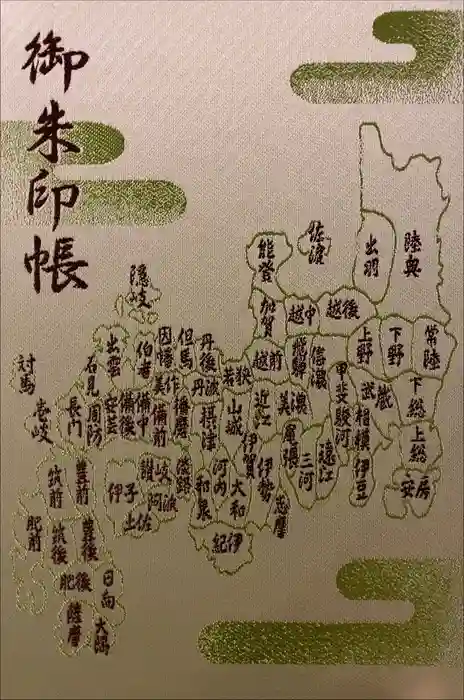 御朱印帳
陸奥
出羽
佐渡
能登
加賀
越中
越後
上野
下野
常陸
越前
飛騨
信濃
甲斐
武蔵
下総
上総
安房
相模
伊豆
駿河
遠江
三河
尾張
美濃
近江
若狭
山城
伊賀
伊勢
志摩
大和
河内
和泉
紀伊
摂津
丹波
丹後
但馬
播磨
淡路
因幡
美作
備前
伯耆
備中
備後
出雲
安芸
石見
周防
長門
隠岐
讃岐
阿波
伊予
土佐
対馬
壱岐
筑前
豊前
肥前
筑後
豊後
肥後
日向
薩摩
大隅